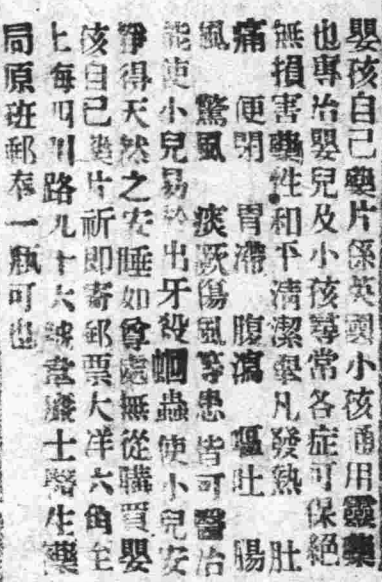 嬰孩自己藥片係英國小孩通用靈藥
也專治嬰兒及小孩尋常各症可保絕
無損害藥性和平清潔舉凡發熱 肚
痛 便閉 胃滯 腹瀉 嘔吐 腸
風 驚風 痰厥傷風等患皆可醫治
能使小兒易於出牙殺蛔蟲使小兒安
靜得天然之安睡如尊處無從購買嬰
孩自己藥片祈即寄郵票大洋六角至
上海四川路九十六號韋廉士醫生藥
局原班郵奉一瓶可也